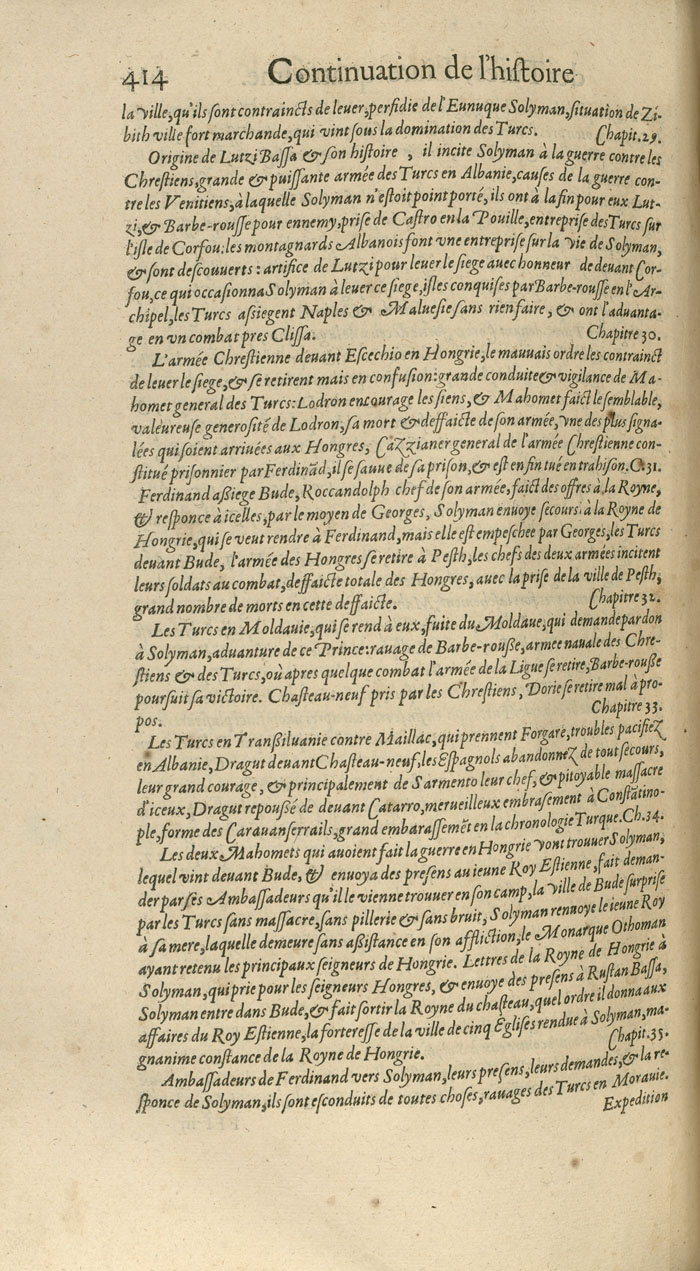 414 Continuation de l'histoire
la ville, qu'ils sont contraincts de leuer, perfidie de l'Eunuque Solyman, situation de Zi-
bith ville fort marchande, qui vint sous la domination des Turcs. Chapit. 29.
Origine de Lutzi Bassa & son histoire , il incite Solyman à la guerre contre les
Chrestiens, grande & puissante armée des Turcs en Albanie, causes de la guerre con-
tre les Venitiens, à laquelle Solyman n'estoit point porté, ils ont à la fin pour eux Lut-
zi, & Barbe-rousse pour ennemy, prise de Castro en la Pouille, entreprise des Turcs sur
l'isle de Corfou: les montagnards Albanois font vne entreprise sur la vie de Solyman,
& sont descouuerts: artifice de Lutzi pour leuer le siege auec honneur de deuant Cor-
fou, ce qui occasionna Solyman à leuer ce siege, isles conquises par Barbe-rousse en l'Ar-
chipel, les Turcs assiegent Naples & Maluesie sans rien faire, & ont l'aduanta-
ge en vn combat pres Clissa. Chapitre 30.
L'armée Chrestienne deuant Escechio en Hongrie, le mauuais ordre les contrainct
de leuer le siege, & se retirent mais en confusion: grande conduite & vigilance de Ma-
homet general des Turcs: Lodron encourage les siens, & Mahomet faict le semblable,
valeureuse generosité de Lodron, sa mort & deffaicte de son armée, vne des plus signa-
lées qui soient arriuées aux Hongres, Cazzianer general de l'armée Chrestienne con-
stitué prisonnier par Ferdinãd, il se sauue de sa prison, & est en fin tué en trahison. C. 31.
Ferdinand aßiege Bude, Roccandolph chef de son armée, faict des offres à la Royne,
& responce à icelles, par le moyen de Georges, Solyman enuoye secours à la Royne de
Hongrie, qui se veut rendre à Ferdinand, mais elle est empeschee par Georges, les Turcs
deuant Bude, l'armée des Hongres se retire à Pesth, les chefs des deux armées incitent
leurs soldats au combat, deffaicte totale des Hongres, auec la prise de la ville de Pesth,
grand nombre de morts en cette deffaicte. Chapitre 32.
Les Turcs en Moldauie, qui se rend à eux, fuite du Moldaue, qui demande pardon
à Solyman, aduanture de ce Prince: rauage de Barbe-rouße, armee nauale des Chre-
stiens & des Turcs, où apres quelque combat l'armée de la Ligue se retire, Barbe-rouße
poursuit sa victoire. Chasteau-neuf pris par les Chrestiens, Dorie se retire mal à pro-
pos. Chapitre 33.
Les Turcs en Tranßiluanie contre Maillac, qui prennent Forgare, troubles pacifiez
en Albanie, Dragut deuant Chasteau-neuf, les Espagnols abandonnez de tout secours,
leur grand courage, & principalement de Sarmento leur chef, & pitoyable massacre
d'iceux, Dragut repoußé de deuant Catarro, merueilleux embrasement à Constãtino-
ple, forme des Carauanserrails, grand embarassemẽt en la chronologie Turque. Ch. 34.
Les deux Mahomets qui auoient fait la guerre en Hongrie vont trouuer Solyman,
lequel vint deuant Bude, & enuoya des presens au ieune Roy Estienne, fait deman-
der par ses Ambassadeurs qu'il le vienne trouuer en son camp, la ville de Bude surprise
par les Turcs sans massacre, sans pillerie & sans bruit, Solyman renuoye le ieune Roy
à sa mere, laquelle demeure sans aßistance en son affliction, le Monarque Othoman
ayant retenu les principaux seigneurs de Hongrie. Lettres de la Royne de Hongrie à
Solyman, qui prie pour les seigneurs Hongres, & enuoye des presens à Rustan Bassa,
Solyman entre dans Bude, & fait sortir la Royne du chasteau, quel ordre il donna aux
affaires du Roy Estienne, la forteresse de la ville de cinq Eglises rendue à Solyman, ma-
gnanime constance de la Royne de Hongrie. Chapit. 35.
Ambassadeurs de Ferdinand vers Solyman, leurs presens, leurs demandes, & la re-
sponce de Solyman, ils sont esconduits de toutes choses, rauages des Turcs en Morauie.
Expedition